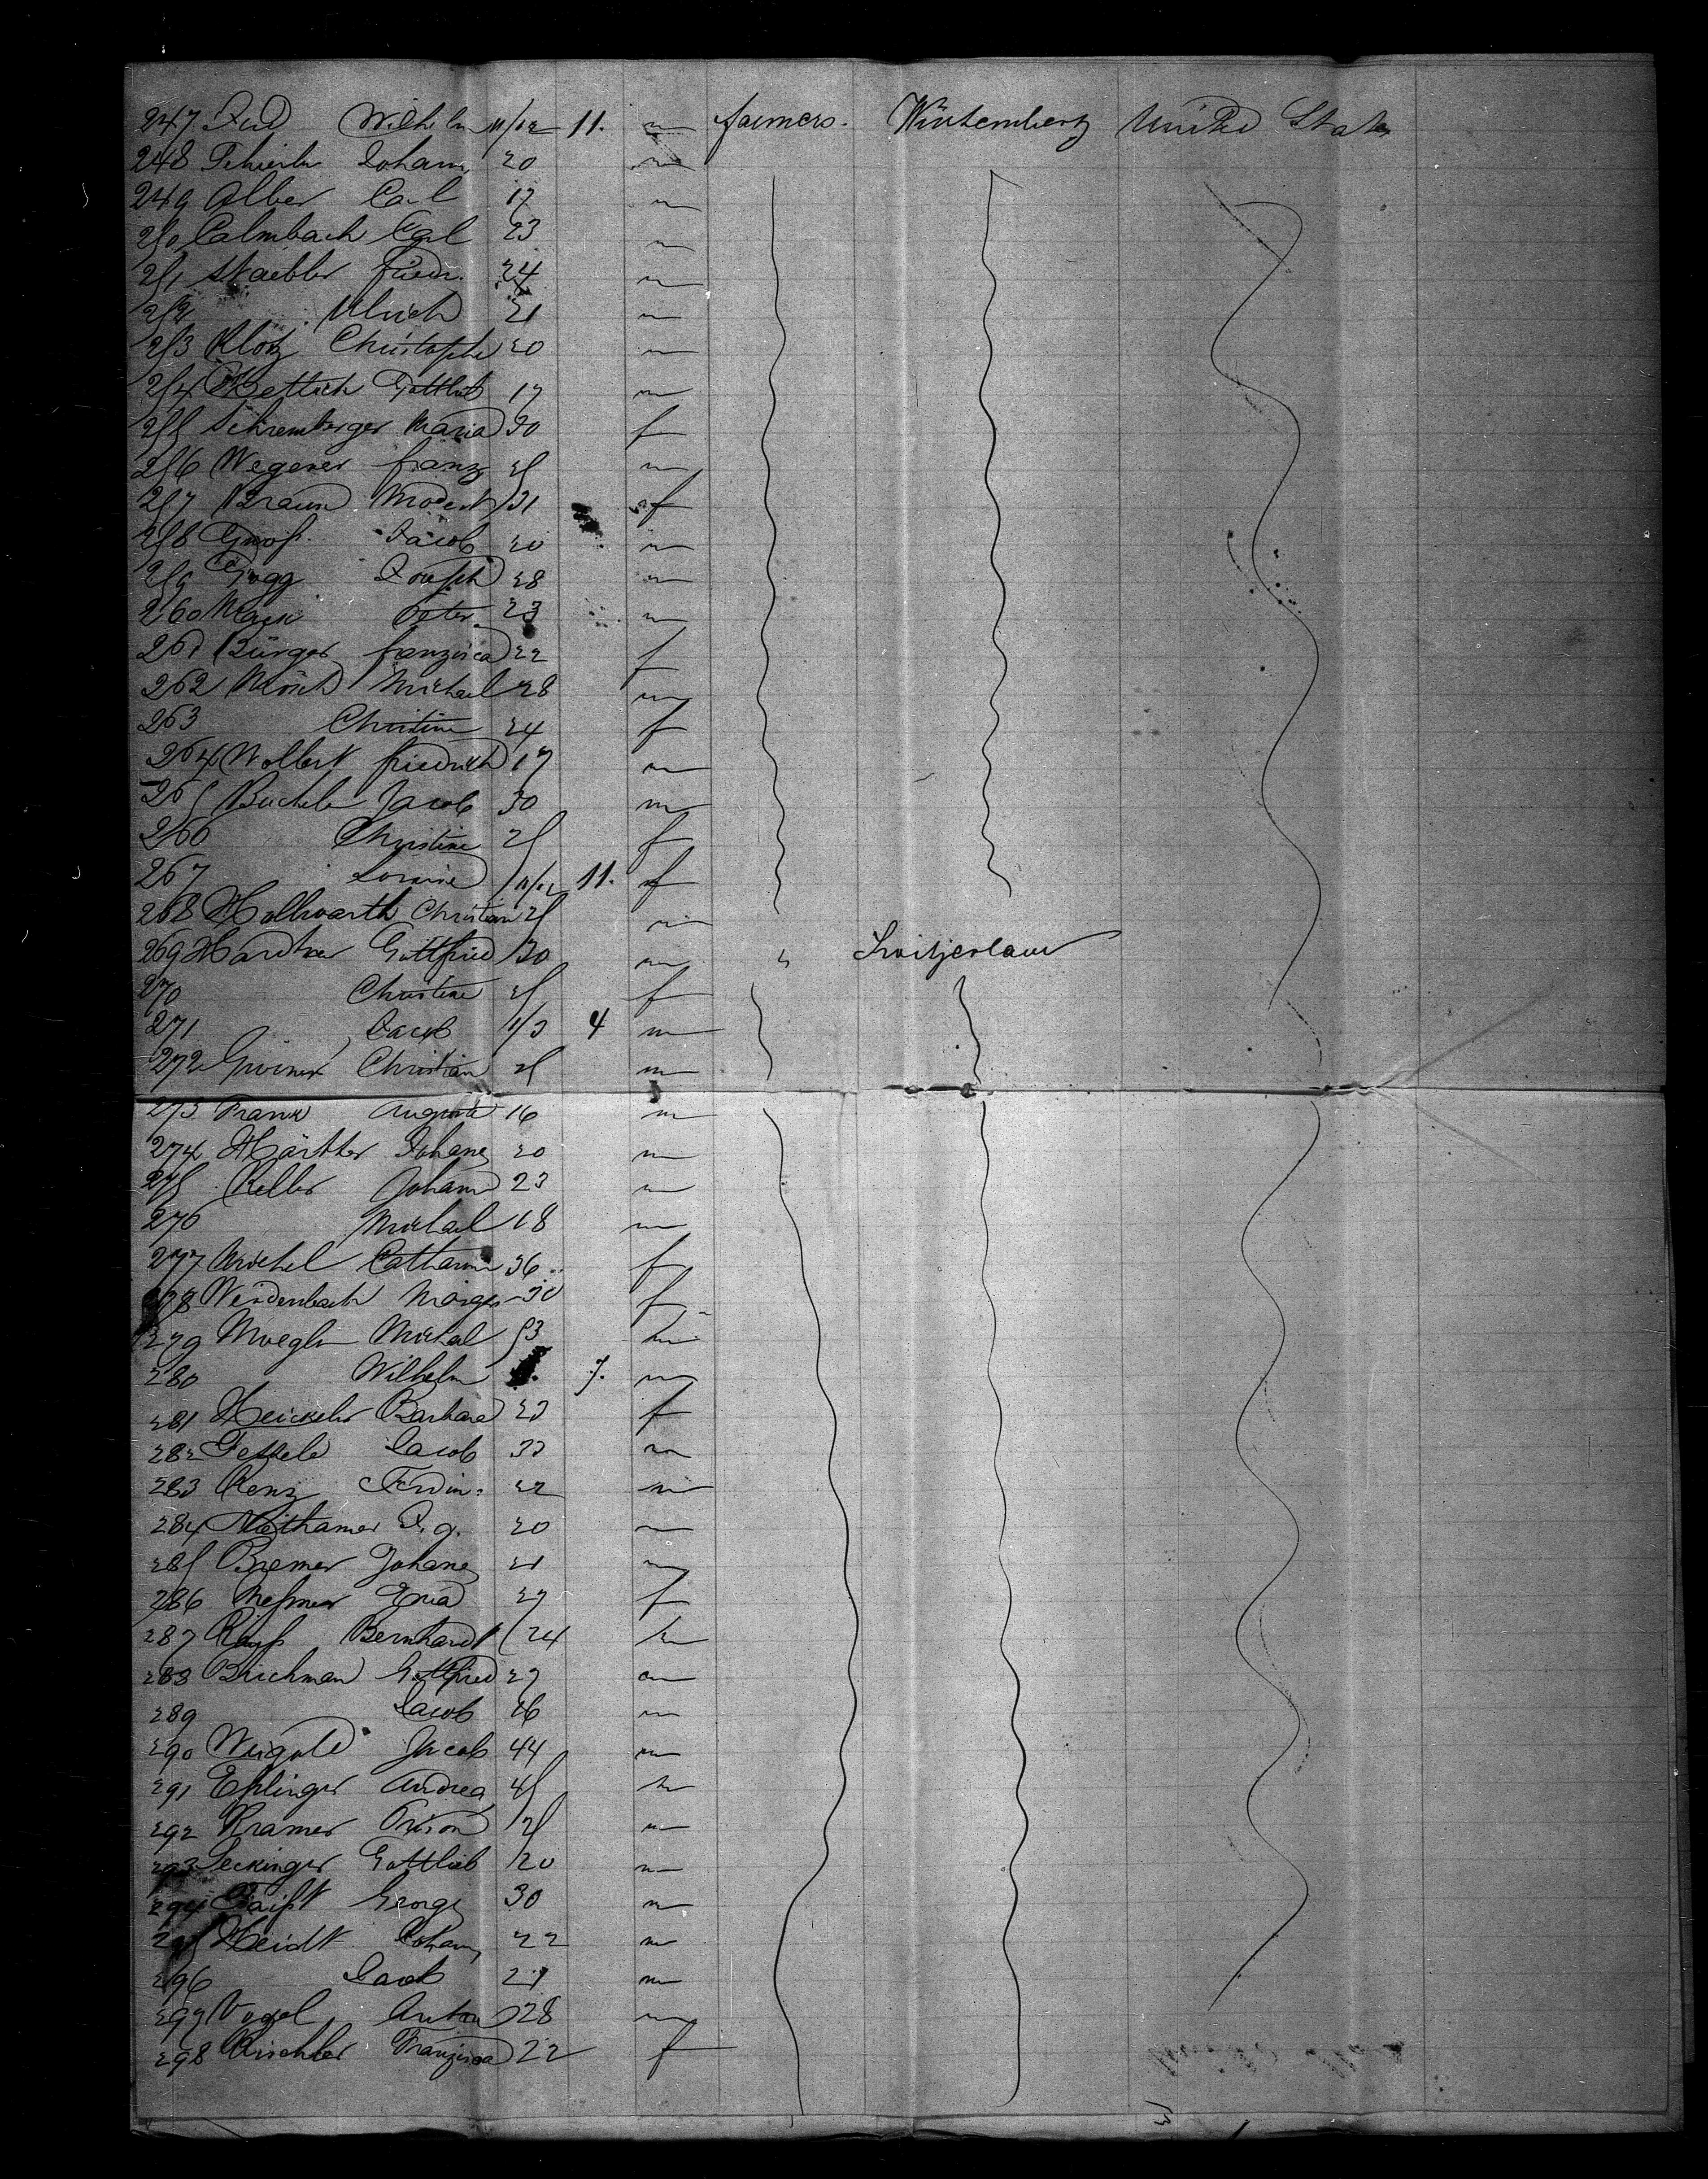 247 Wilhelm 11/12 11. m farmers. Würtemberg United States
248 Johann 20 m
249 Alber Carl 17 m
250 Calmbach Carl 23 m
251 Staebler Friedr. 24 m
252 Ulrich 21 m
253 Klotz Christoph 20 m
254 Rettich Gottlieb 17 m
255 Schremberger Maria 30 f
256 Wegener Franz 25 m
257 Braun 31 f
258 Jacob 20 m
259 Fogg Joseph 28 m
260 Mack Peter 23 m
261 Bürger Franzisca 22 f
262 Mösch Michael 28 m
263 Christine 24 f
264 Wolbert Friedrich 17 m
265 Buchele Jacob 30 m
266 Christine 25 f
267 11/12 11. f
268 Hollwarth Christian 25 m
269 Hardtner Gottfried 30 m " Switzerland
270 Christine 25 f
271 Jacob 4 m
272 Christian 25 m
273 Frank August 16 m
274 Härtter Johanes 20 m
275 Keller Johann 23 m
276 Michael 18 m
277 Michel Catharine 36 f
278 Weidenbach 30 f
279 Moegle Michael 53 m
280 Wilhelm 7. m
281 Heickeler Barbara 23 f
282 Jacob 33 m
283 Renz Ferdin: 22 m
284 Niethamer J. G. 20 m
285 Bremer Johanes 21 m
286 Meßmer 27 f
287 Bernhardt 24 m
288 Gottfried 27 m
289 Jacob 16 m
290 Weigold Jacob 44 m
291 Eßlinger Andrea 45 m
292 Kramer 25 m
293 Seckinger Gottlieb 20 m
294 Faißt George 30 m
295 Heidt Johann 22 m
296 Jacob 21 m
297 Vogel Anton 28 m
298 Kirschler Franzisca 22 f